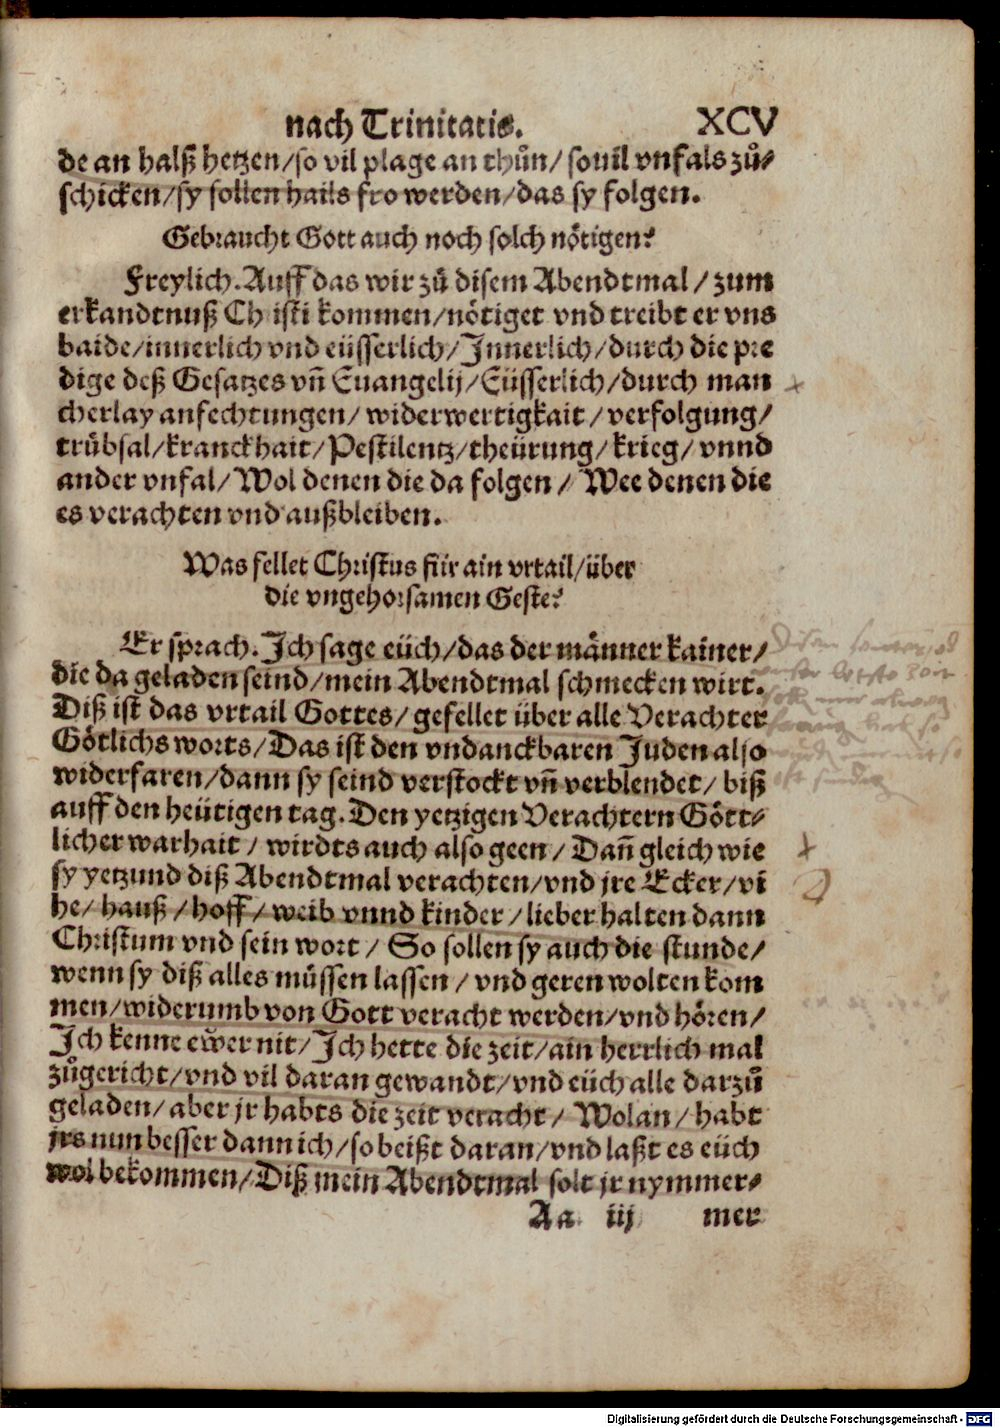 nach Trinitatis. XCV
de an halß hetzen/so vil plage an thůn/ souil vnfals zů⸗
schicken/sy sollen hails fro werden/das sy folgen.
Gebraucht Gott auch noch solch nötigen?
Freylich. Auff das wir zů disem Abendtmal/ zum
erkandtnuß Christi kommen/nötiget vnd treibt er vns
baide/innerlich vnd eüsserlich/Innerlich/durch die pre
dige deß Gesatzes vñ Euangelij/Eüsserlich/durch man
cherlay anfechtungen/ widerwertigkait/ verfolgung/
trübsal/kranckhait/Pestilentz/theürung/krieg/ vnnd
ander vnfal/ Wol denen die da folgen/ Wee denen die
es verachten vnd außbleiben.
Was fellet Christus für ain vrtail/über
die vngehorsamen Geste?
Er sprach. Ich sage eüch/das der männer kainer/
die da geladen seind/mein Abendtmal schmecken wirt.
Diß ist das vrtail Gottes/ gefellet über alle Verachter
Götlichs worts/Das ist den vndanckbaren Juden also
widerfaren/dann sy seind verstockt vñ verblendet/ biß
auff den heütigen tag. Den yetzigen Verachtern Gött⸗
licher warhait/ wirdts auch also geen/ Dañ gleich wie
sy yetzund diß Abendtmal verachten/vnd jre Ecker/vi
he/ hauß/hoff/ weib vnnd kinder/lieber halten dann
Christum vnd sein wort/ So sollen sy auch die stunde/
wenn sy diß alles müssen lassen/ vnd geren wolten kom
men/widerumb von Gott veracht werden/vnd hören/
Ich kenne eẘer nit/Ich hette die zeit/ain herrlich mal
zůgericht/vnd vil daran gewandt/vnd eüch alle darzů
geladen/ aber jr habts die zeit veracht/ Wolan/ habt
jrs nun besser dann ich/so beißt daran/vnd laßt es eüch
wol bekommen/Diß mein Abendtmal solt jr nymmer⸗
Aa iij mer
Digitalisierung gefördert durch die Deutsche Forschungsgemeinschaft - DFG